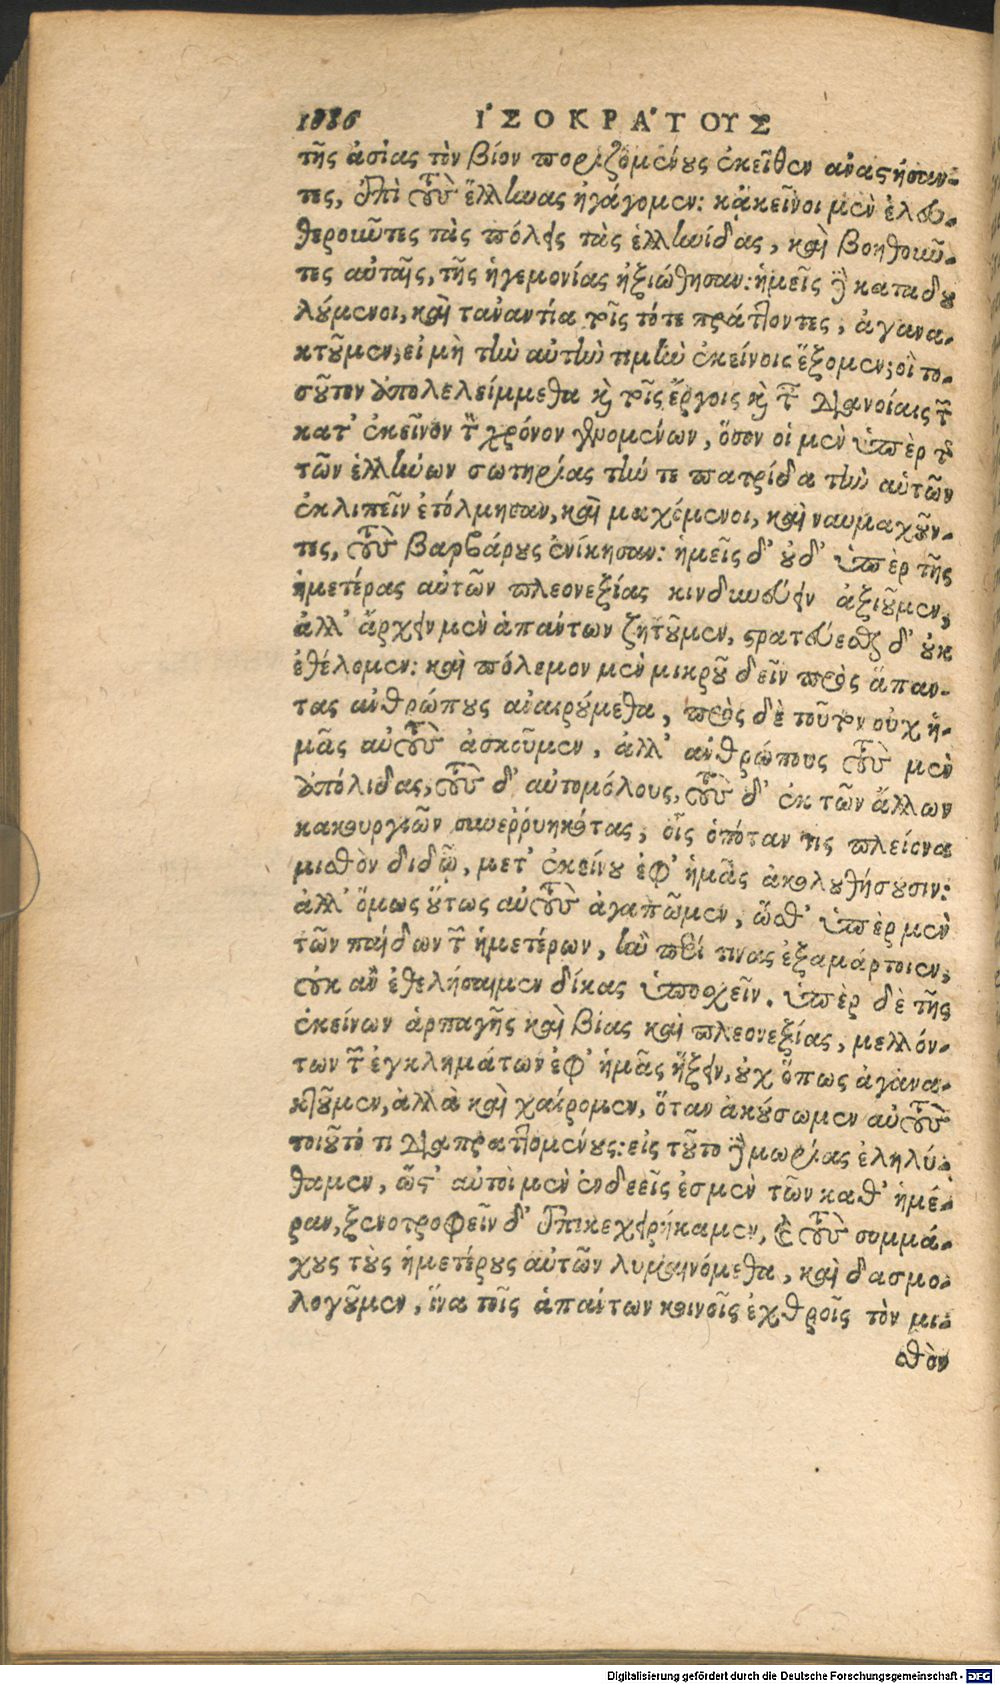 1086 ἸΣΟΚΡΆΤΟΥΣ
τῆς ἀσίας τὸν βίον ποριζομένους ἐκεῖθεν ἀναστήσαν-
τες, ἐπὶ τοὺς ἕλληνας ἠγάγομεν: κἀκεῖνοι μὲν ἐλευ-
θεροῦντες τὰς πόλεις τὰς ἑλληνίδας, καὶ βοηθοῦν-
τες αὐταῖς, τῆς ἡγεμονίας ἠξιώθησαν: ἡμεῖς δὲ καταδου
λούμενοι, καὶ τἀναντία τοῖς τότε πράττοντες, ἀγανα-
κτοῦμεν, εἰ μὴ τὴν αὐτὴν τιμὴν ἐκείνοις ἕξομεν; οἳ το-
σοῦτον ἀπολελείμμεθα καὶ τοῖς ἔργοις καὶ ταῖς διανοίαις τῶν
κατ' ἐκεῖνον τὸν χρόνον γενομένων, ὅσον οἱ μὲν ὑπὲρ τῆς
τῶν ἑλλήνων σωτηρίας τήν τε πατρίδα τὴν αὑτῶν
ἐκλιπεῖν ἐτόλμησαν, καὶ μαχόμενοι, καὶ ναυμαχοῦν-
τες, τοὺς βαρβάρους ἐνίκησαν: ἡμεῖς δ' οὐδ' ὑπὲρ τῆς
ἡμετέρας αὐτῶν πλεονεξίας κινδυνεύειν ἀξιοῦμεν,
ἀλλ' ἄρχειν μὲν ἁπάντων ζητοῦμεν, στρατεύεσθαι δ' οὐκ
ἐθέλομεν: καὶ πόλεμον μὲν μικροῦ δεῖν πρὸς ἅπαν-
τας ἀνθρώπους ἀναιρούμεθα, πρὸς δὲ τοῦτον οὐχ ἡ-
μᾶς αὐτοὺς ἀσκοῦμεν, ἀλλ' ἀνθρώπους τοὺς μὲν
ἀπόλιδας, τοὺς δ' αὐτομόλους, τοὺς δ' ἐκ τῶν ἄλλων
κακουργιῶν συνερρυηκότας, οἷς ὁπόταν τις πλείονα
μισθὸν διδῷ, μετ' ἐκείνου ἐφ' ἡμᾶς ἀκολουθήσουσιν:
ἀλλ' ὅμως οὕτως αὐτοὺς ἀγαπῶμεν, ὥσθ' ὑπὲρ μὲν
τῶν παίδων τῶν ἡμετέρων, ἢν περί τινας ἐξαμάρτοιεν,
οὐκ ἂν ἐθελήσαιμεν δίκας ὑποσχεῖν. ὑπὲρ δὲ τῆς
ἐκείνων ἁρπαγῆς καὶ βίας καὶ πλεονεξίας, μελλόν-
των τῶν ἐγκλημάτων ἐφ' ἡμᾶς ἥξειν, οὐχ ὅπως ἀγανα-
κτοῦμεν, ἀλλὰ καὶ χαίρομεν, ὅταν ἀκούσωμεν αὐτοὺς
τοιοῦτό τι διαπραττομένους: εἰς τοῦτο δὲ μωρίας ἐληλύ-
θαμεν, ὥστ' αὐτοὶ μὲν ἐνδεεῖς ἐσμὲν τῶν καθ' ἡμέ-
ραν, ξενοτροφεῖν δ' ἐπικεχειρήκαμεν, καὶ τοὺς συμμά-
χους τοὺς ἡμετέρους αὐτῶν λυμαινόμεθα, καὶ δασμο-
λογοῦμεν, ἵνα τοῖς ἁπάντων κοινοῖς ἐχθροῖς τὸν μι-
σθὸν
Digitalisierung gefördert durch die Deutsche Forschungsgemeinschaft - DFG